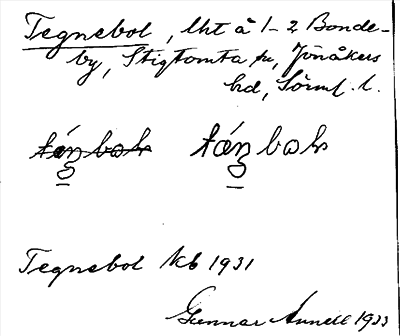 Tegnebol, lht å 1-2 Bonde-
by, Stigtomta sn, Jönåkers
hd, Sörml. l.
Tegnebol Kb 1931
Gunnar Annell 1933